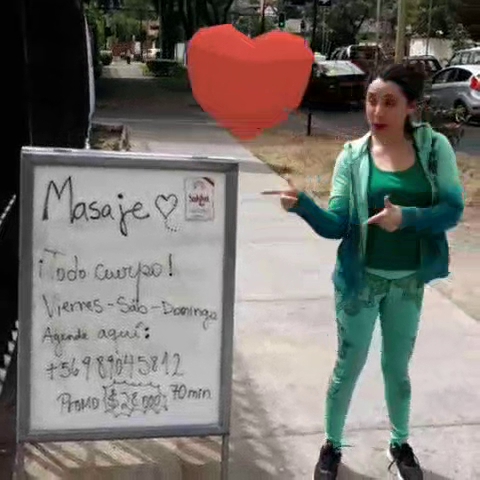 Masaje
¡Todo cuerpo!
Viernes-Sáb-Domingo
Agende aquí:
+56989045812
Promo $28.000 70 min